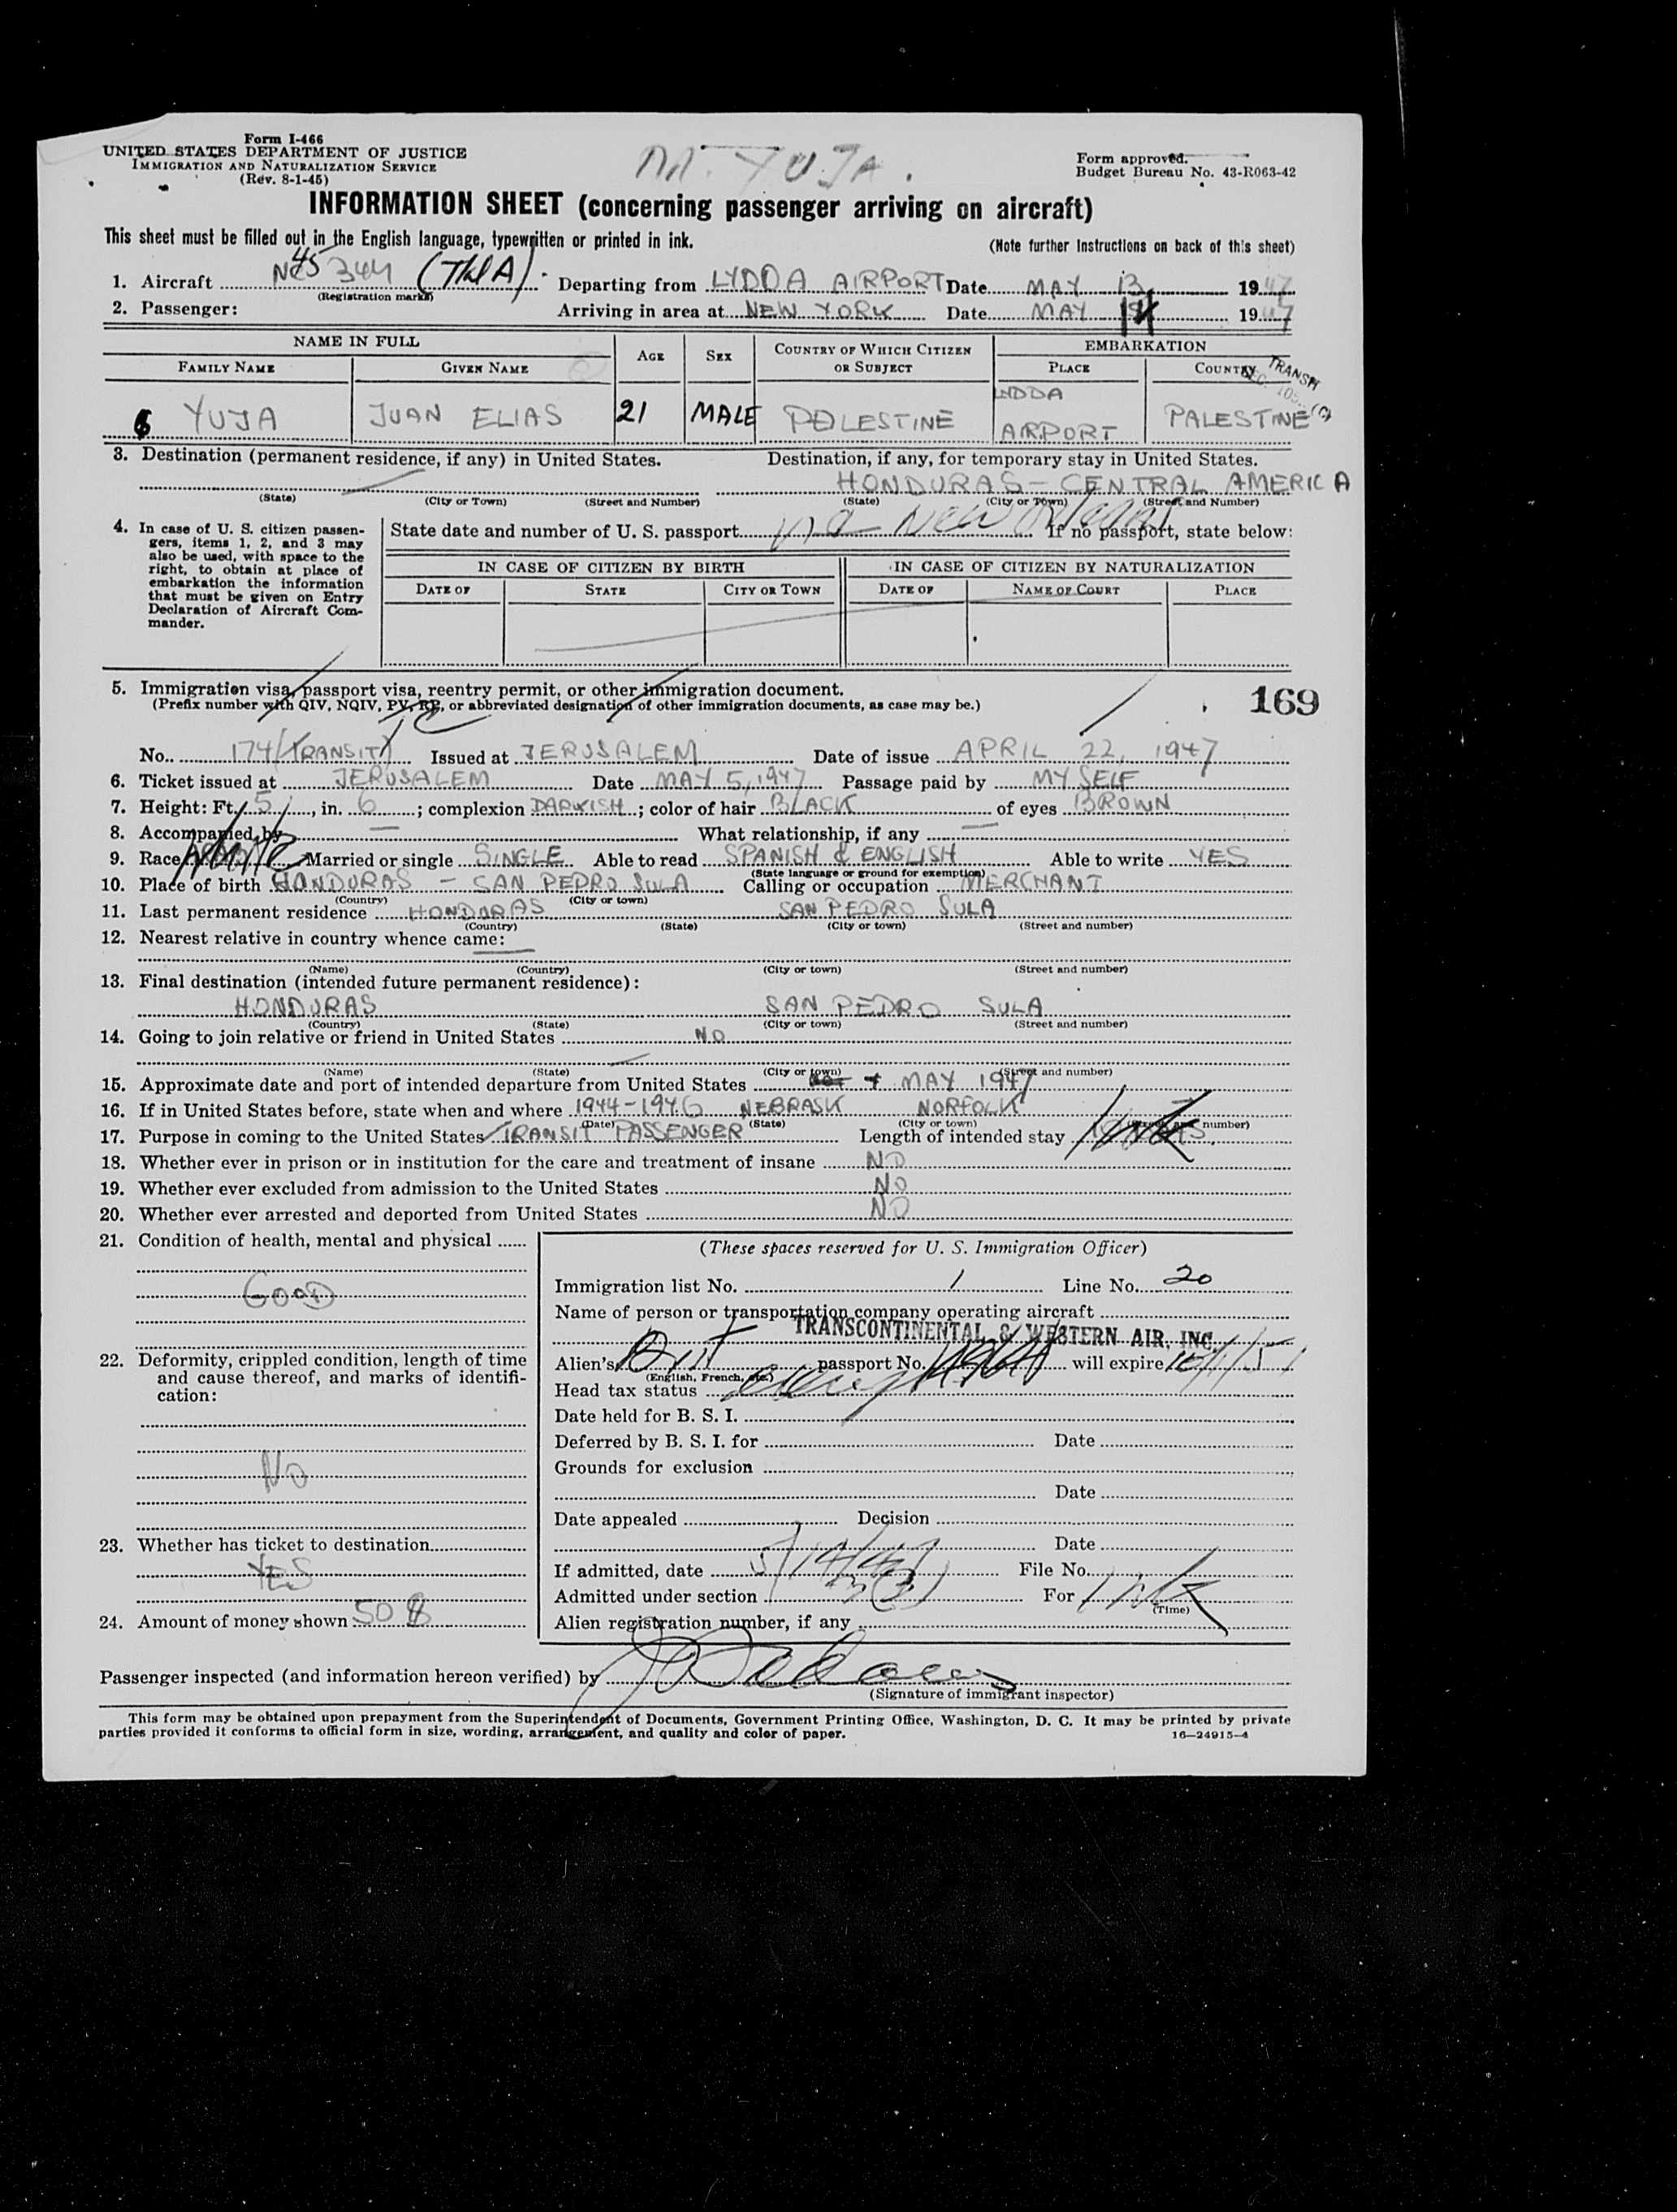 Form I-466
UNITED STATES DEPARTMENT OF JUSTICE
IMMIGRATION AND NATURALIZATION SERVICE
(Rev. 8-1-45)
M. YUJA.
Form approved.
Budget Bureau No. 43-R063-42
INFORMATION SHEET (concerning passenger arriving on aircraft)
This sheet must be filled out in the English language, typewritten or printed in ink.
(Note further Instructions on back of this sheet)
1. Aircraft 45344 (TWA). Departing from LYDDA AIRPORT Date MAY 13 1947
(Registration marks)
2. Passenger: Arriving in area at NEW YORK Date MAY 14 1947
NAME IN FULL
FAMILY NAME GIVEN NAME AGE SEX COUNTRY OF WHICH CITIZEN OR SUBJECT EMBARKATION PLACE COUNTRY
TRANSIT
YUJA JUAN ELIAS 21 MALE PALESTINE LYDDA AIRPORT PALESTINE
3. Destination (permanent residence, if any) in United States. Destination, if any, for temporary stay in United States.
HONDURAS - CENTRAL AMERICA
(State) (City or Town) (Street and Number) (State) (City or Town) (Street and Number)
4. In case of U. S. citizen passengers, items 1, 2, and 3 may also be used, with space to the right, to obtain at place of embarkation the information that must be given on Entry Declaration of Aircraft Commander.
State date and number of U. S. passport via New Orleans If no passport, state below:
IN CASE OF CITIZEN BY BIRTH IN CASE OF CITIZEN BY NATURALIZATION
DATE OF STATE CITY OR TOWN DATE OF NAME OF COURT PLACE
5. Immigration visa, passport visa, reentry permit, or other immigration document.
(Prefix number with QIV, NQIV, PV, RP, or abbreviated designation of other immigration documents, as case may be.)
169
No. 174 (TRANSIT) Issued at JERUSALEM Date of issue APRIL 22, 1947
6. Ticket issued at JERUSALEM Date MAY 5, 1947 Passage paid by MY SELF
7. Height: Ft. 5, in. 6; complexion DARKISH; color of hair BLACK of eyes BROWN
8. Accompanied by — What relationship, if any —
9. Race White Married or single SINGLE Able to read SPANISH & ENGLISH Able to write YES
(State language or ground for exemption)
10. Place of birth HONDURAS - SAN PEDRO SULA Calling or occupation MERCHANT
(Country) (City or town)
11. Last permanent residence HONDURAS SAN PEDRO SULA
(Country) (State) (City or town) (Street and number)
12. Nearest relative in country whence came:
(Name) (Country) (City or town) (Street and number)
13. Final destination (intended future permanent residence):
HONDURAS SAN PEDRO SULA
(Country) (State) (City or town) (Street and number)
14. Going to join relative or friend in United States NO
(Name) (State) (City or town) (Street and number)
15. Approximate date and port of intended departure from United States MAY 1947
16. If in United States before, state when and where 1944-1946 NEBRASK NORFOLK
(Date) (State) (City or town) (Street and number)
17. Purpose in coming to the United States TRANSIT PASSENGER Length of intended stay
18. Whether ever in prison or in institution for the care and treatment of insane NO
19. Whether ever excluded from admission to the United States NO
20. Whether ever arrested and deported from United States NO
21. Condition of health, mental and physical
GOOD
22. Deformity, crippled condition, length of time and cause thereof, and marks of identification:
NO
23. Whether has ticket to destination
YES
24. Amount of money shown 50 $
(These spaces reserved for U. S. Immigration Officer)
Immigration list No. 1 Line No. 20
Name of person or transportation company operating aircraft
TRANSCONTINENTAL & WESTERN AIR, INC.
Alien's Brit passport No. will expire
(English, French, etc.)
Head tax status
Date held for B. S. I.
Deferred by B. S. I. for Date
Grounds for exclusion
Date
Date appealed Decision
Date
If admitted, date 5/14/47 File No.
Admitted under section 3(3) For
(Time)
Alien registration number, if any
Passenger inspected (and information hereon verified) by
(Signature of immigrant inspector)
This form may be obtained upon prepayment from the Superintendent of Documents, Government Printing Office, Washington, D. C. It may be printed by private
parties provided it conforms to official form in size, wording, arrangement, and quality and color of paper.
16—24915-4